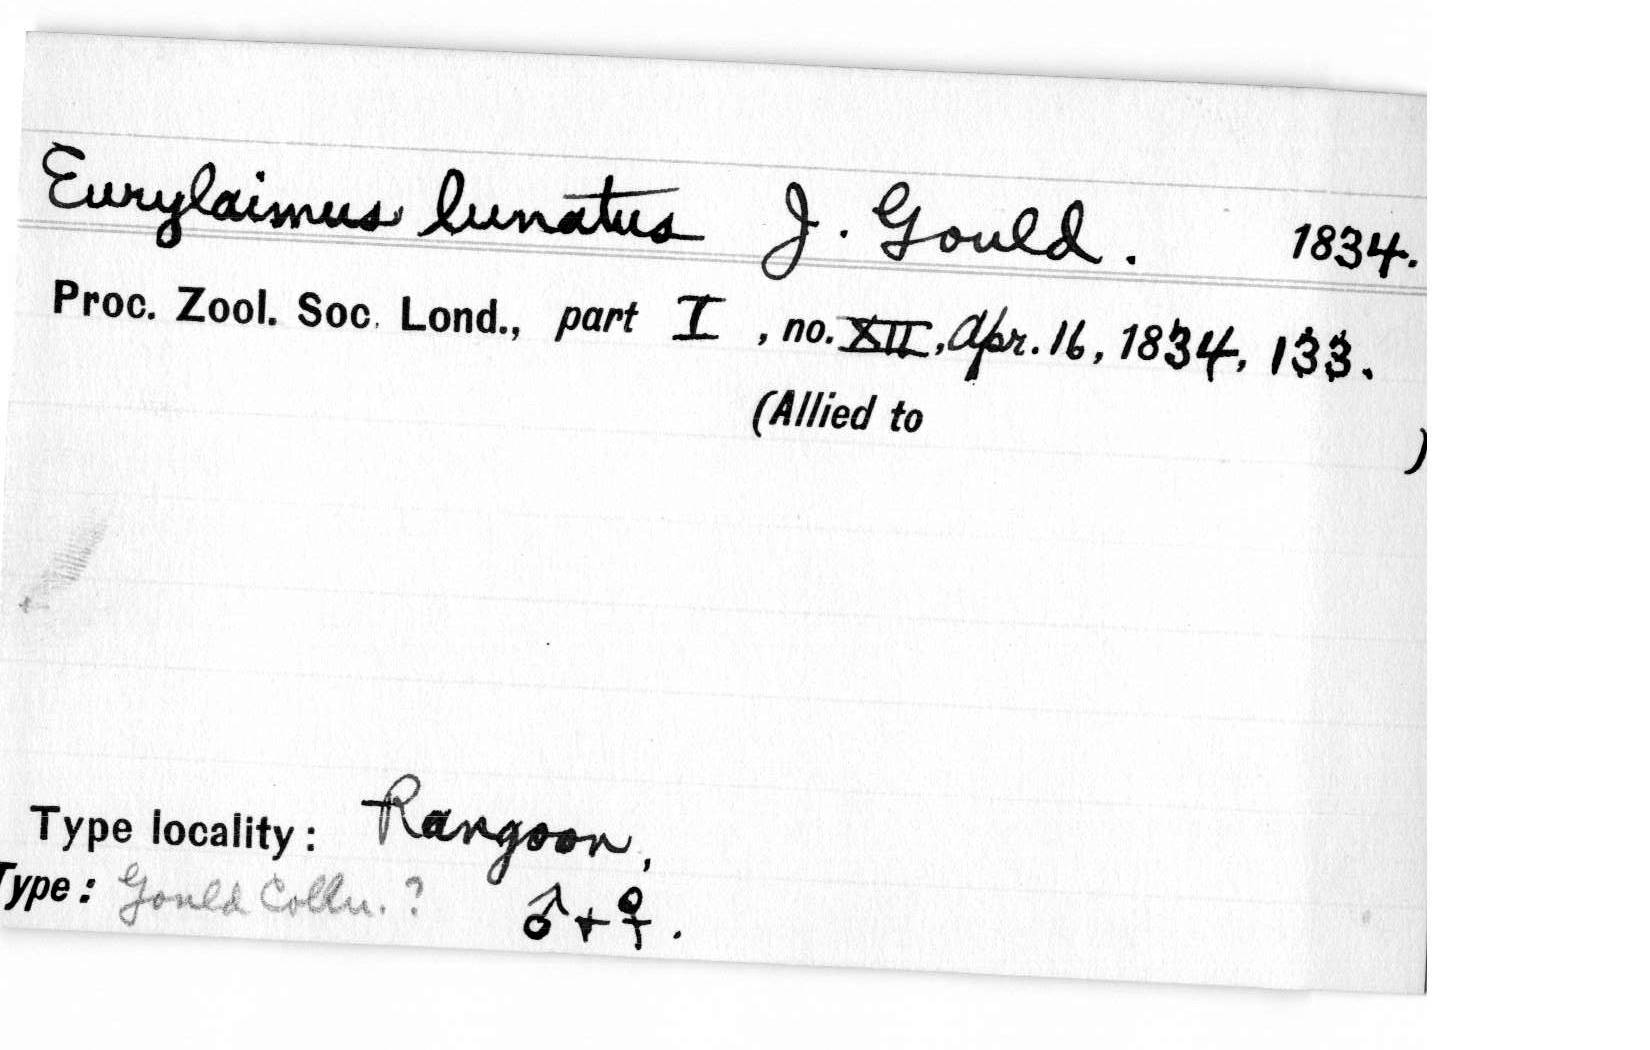 Eurylaimus lunatus J. Gould. 1834.
Proc. Zool. Soc. Lond., part I, no. XII, Apr. 16, 1834, 133.
(Allied to )
Type locality: Rangoon,
Type: Gould Colln. ? ♂ + ♀.